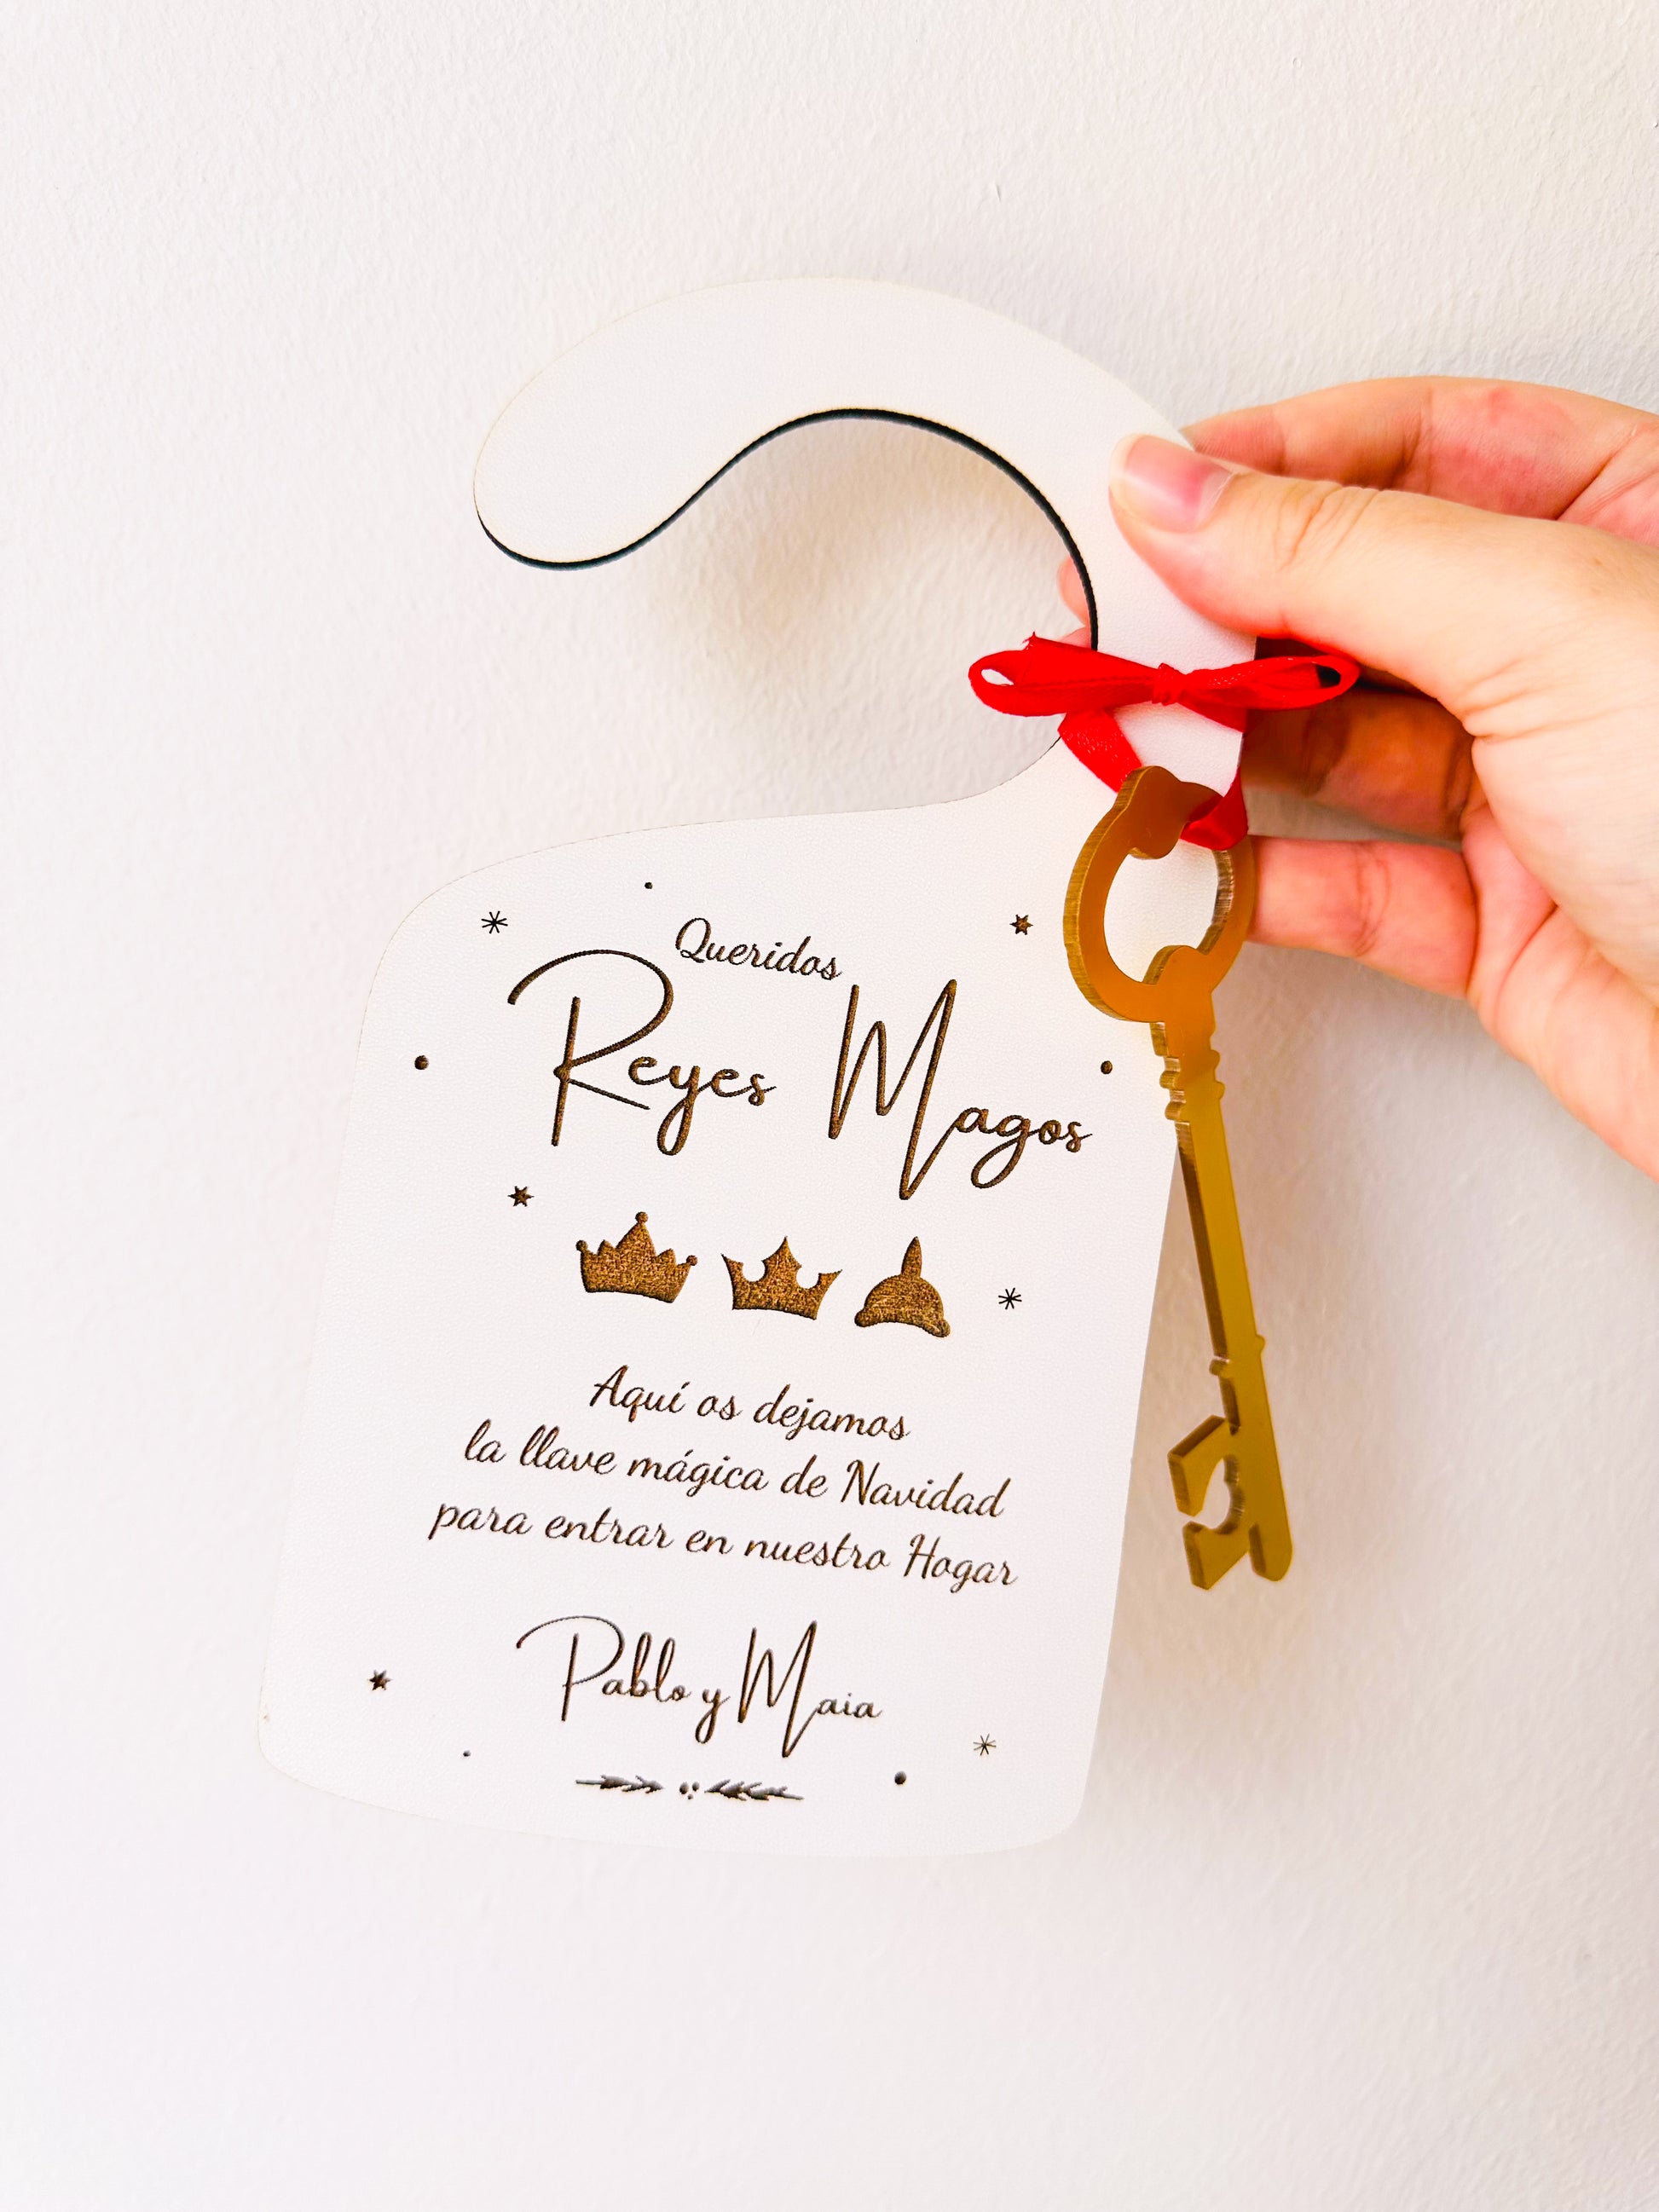 Queridos
Reyes Magos
Aquí os dejamos
la llave mágica de Navidad
para entrar en nuestro Hogar
Pablo y Maia